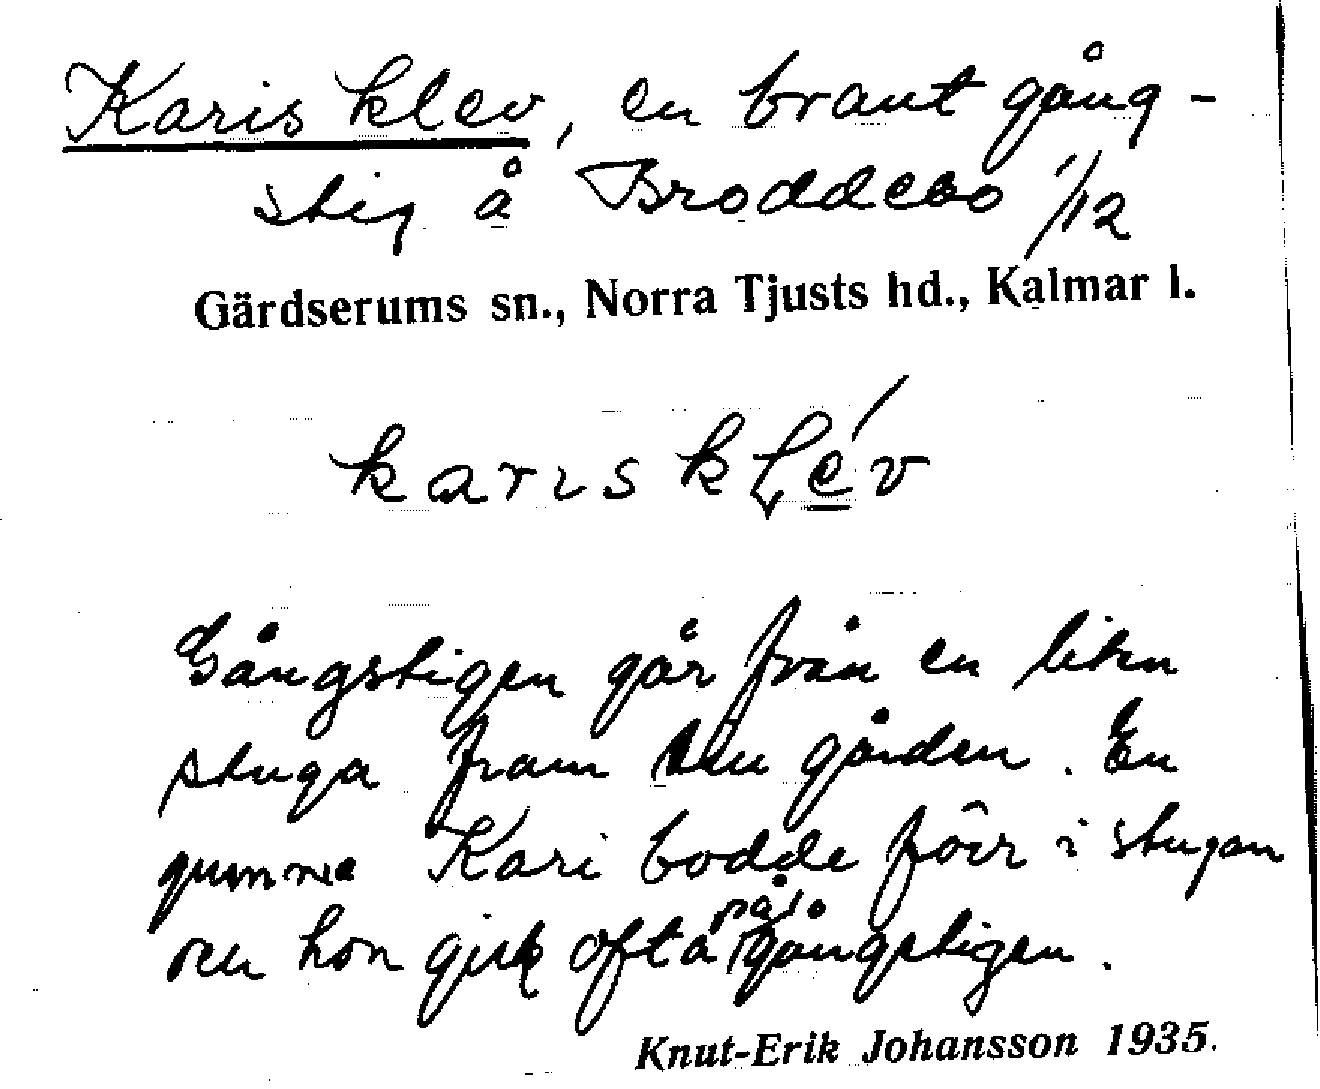 Karis klev, en brant gång-
stig å Broddebo 1/12
Gärdserums sn., Norra Tjusts hd., Kalmar l.
karıs klév
Gångstigen går från en liten
stuga fram till gården. En
gumma Kari bodde förr i stugan
och hon gick ofta på gångstigen.
Knut-Erik Johansson 1935.